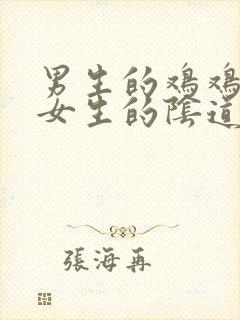 男生的鸡鸡
女生的陰道
張海再